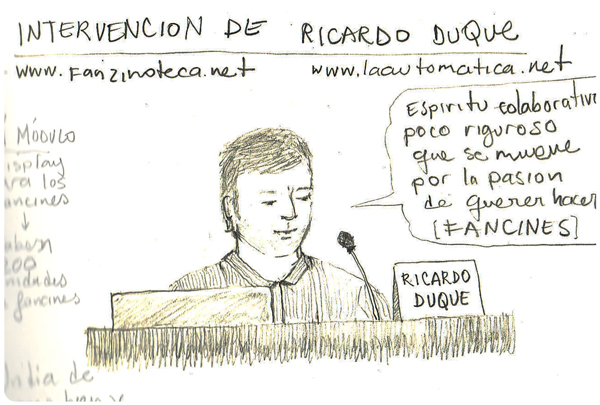 INTERVENCION DE RICARDO DUQUE
www.Fanzinoteca.net www.laautomatica.net
Espiritu colaborativo
poco riguroso
que se mueve
por la pasion
de querer hacer
[FANCINES]
RICARDO
DUQUE
MÓDULO
Display
los
fancines
200
unidades
fancines
de